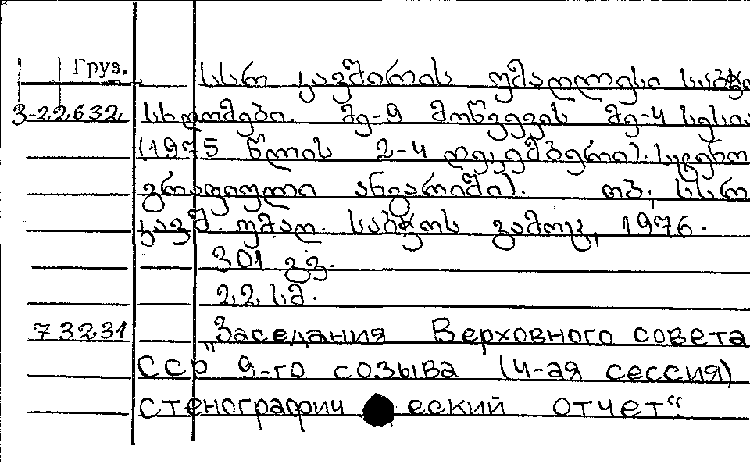 Груз.
სსრ კავშირის უმაღლესი საბჭო
3-22632. სხდომები. მე-9 მოწვევის მე-4 სესია
(1975 წლის 2-4 დეკემბერი). სტენო
გრაფიული ანგარიში). თბ., სსრ
კავშ. უმაღ. საბჭოს გამოც., 1976.
301 გვ.
22 ს.მ.
73231 "Заседания Верховного совета
ССР 9-го созыва (4-ая сессия)
стенографический отчет"